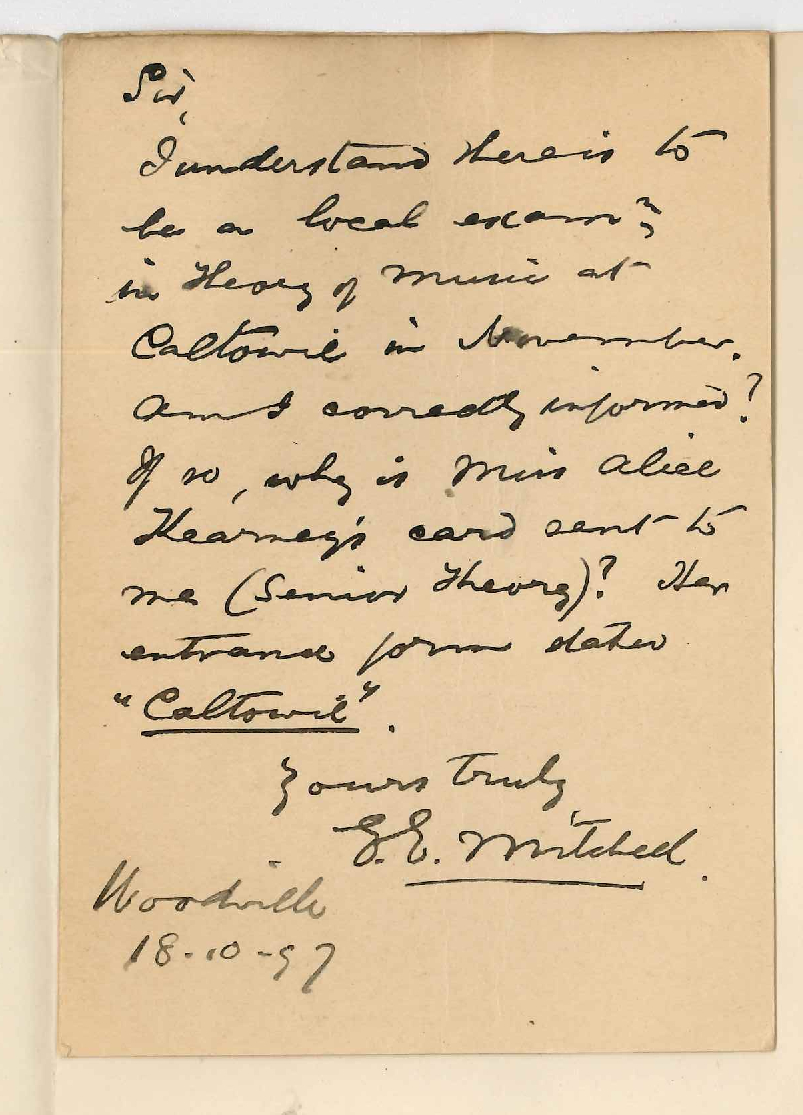 Sir,
I understand there is to
be a local exam n
in Theory of Music at
Caltowie in November.
Am I correctly informed?
If so, why is Miss Alice
Kearney's card sent to
me (Senior Theory)? Her
entrance form dates
"Caltowie".
Yours truly
G.E. Mitchell.
Woodville
18-10-97